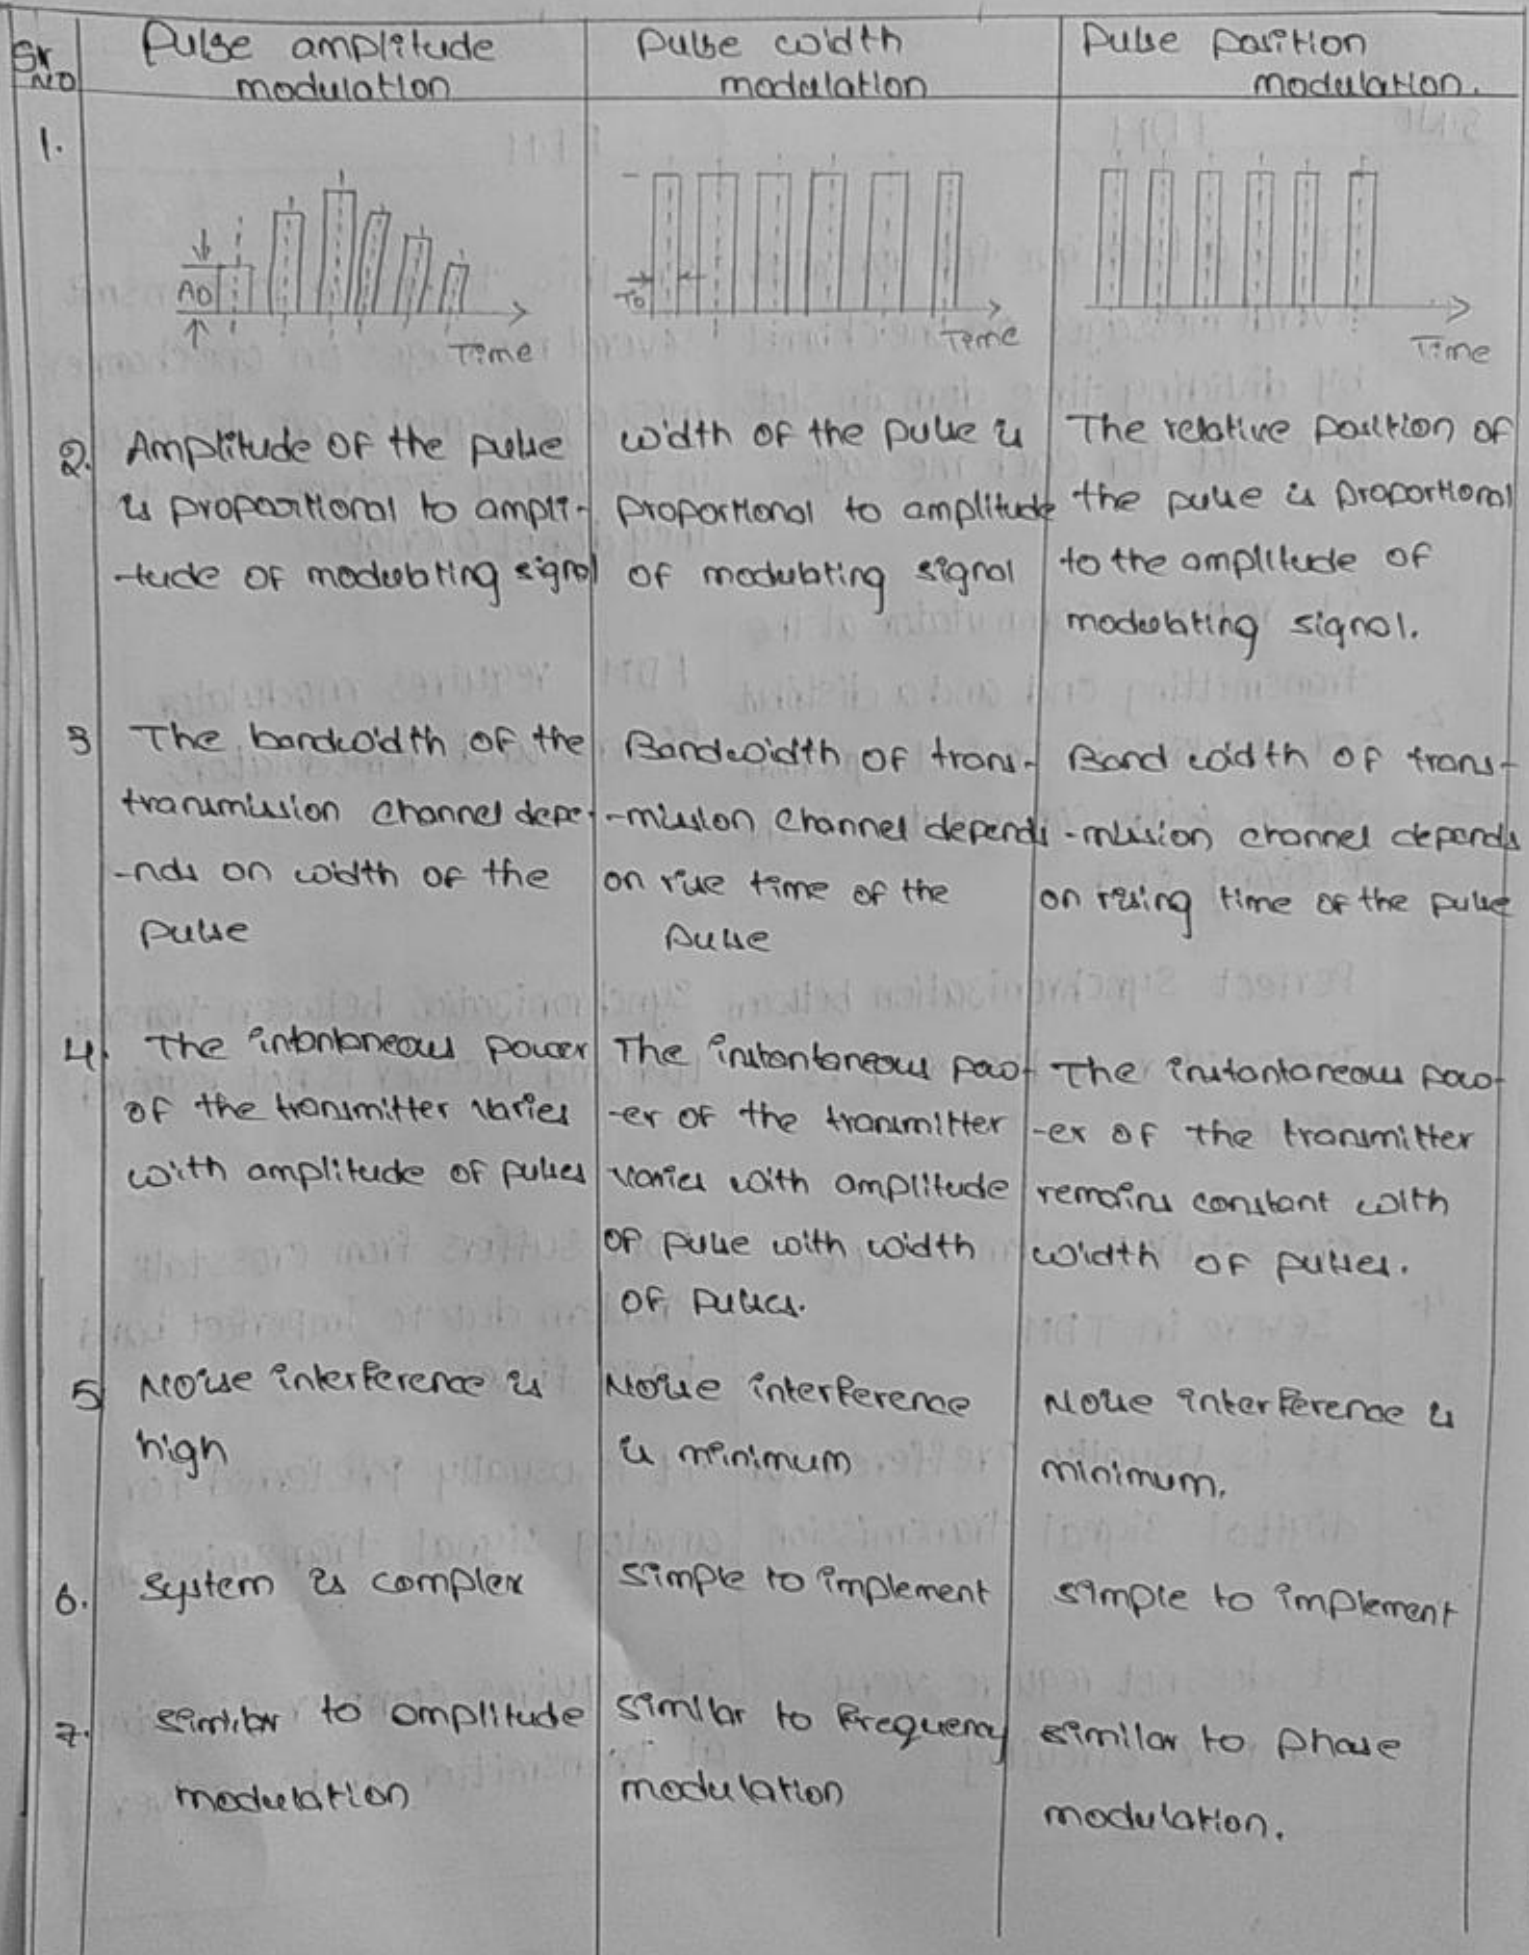 Sr No
Pulse amplitude
modulation
Pulse width
modulation
Pulse position
modulation.
1.
A0
Time
T0
Time
Time
2.
Amplitude of the pulse
is proportional to ampli-
-tude of modulating signal
width of the pulse is
proportional to amplitude
of modulating signal
The relative position of
the pulse is proportional
to the amplitude of
modulating signal.
3
The bandwidth of the
transmission channel depe-
-nds on width of the
pulse
Bandwidth of trans-
-mission channel depends
on rise time of the
pulse
Band width of trans-
-mission channel depends
on rising time of the pulse
4.
The instantaneous power
of the transmitter varies
with amplitude of pulses
The instantaneous pow-
-er of the transmitter
varies with amplitude
of pulse with width
of pulses.
The instantaneous pow-
-er of the transmitter
remains constant with
width of pulses.
5
Noise interference is
high
Noise interference
is minimum
Noise interference is
minimum.
6.
System is complex
Simple to implement
simple to implement
7.
similar to amplitude
modulation
similar to frequency
modulation
similar to phase
modulation.